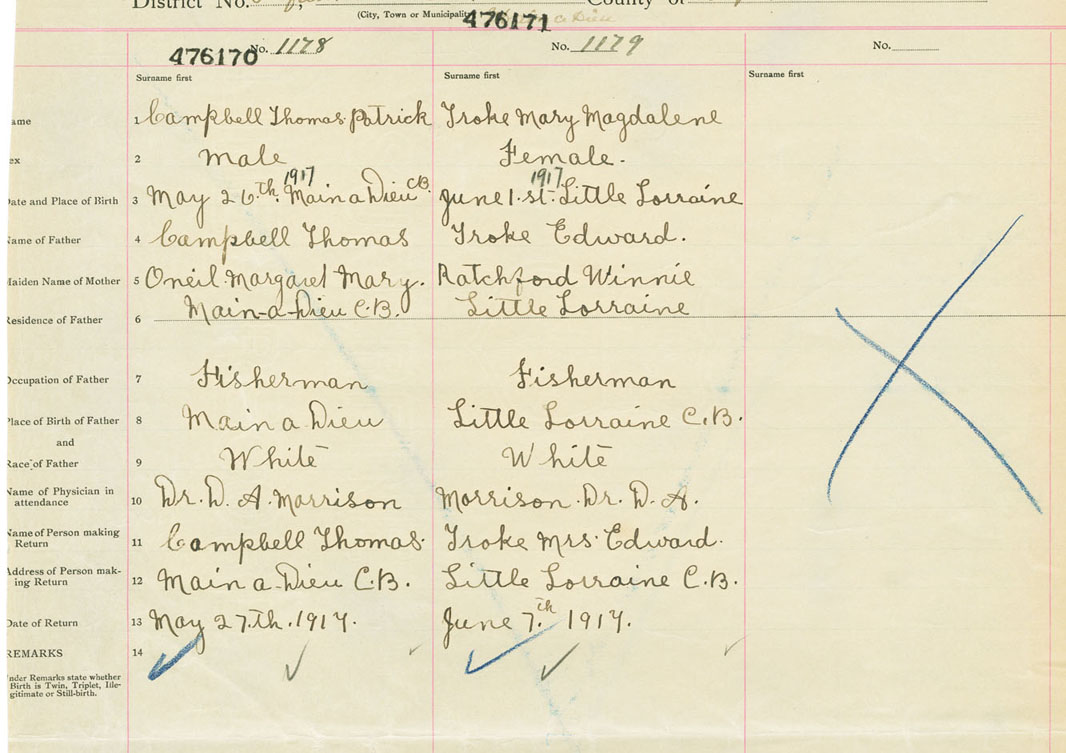 District No.
County of
(City, Town or Municipality
476171
476170
No. 1178
No. 1179
No.
Surname first
Surname first
Surname first
ame
1 Campbell Thomas Patrick
Troke Mary Magdalene
ex
2 Male
Female.
Date and Place of Birth
3 May 26th. 1917 Main a Dieu C.B.
June 1.st. 1917 Little Lorraine
Name of Father
4 Campbell Thomas
Troke Edward.
Maiden Name of Mother
5 Oneil Margaret Mary.
Ratchford Winnie
Residence of Father
6 Main-a-Dieu C.B.
Little Lorraine
Occupation of Father
7 Fisherman
Fisherman
Place of Birth of Father
8 Main a Dieu
Little Lorraine C.B.
and
Race of Father
9 White
White
Name of Physician in
attendance
10 Dr. D. A. Morrison
Morrison. Dr. D. A.
Name of Person making
Return
11 Campbell Thomas.
Troke Mrs. Edward.
Address of Person mak-
ing Return
12 Main a Dieu C.B.
Little Lorraine C.B.
Date of Return
13 May 27.th. 1917.
June 7.th 1917.
REMARKS
14
nder Remarks state whether
Birth is Twin, Triplet, Ille-
gitimate or Still-birth.